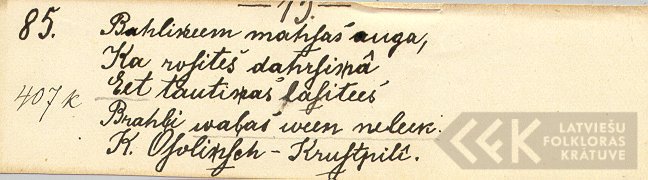 — 13. —
85. Bahliņeem mahſas auga,
Ka roſites dahrſiņâ
407k Eet tautiņas laſitees
Brahļi waļas ween neleek.
K. Oſoliņſch – Kruſtpilî.
LATVIEŠU
FOLKLORAS
KRĀTUVE